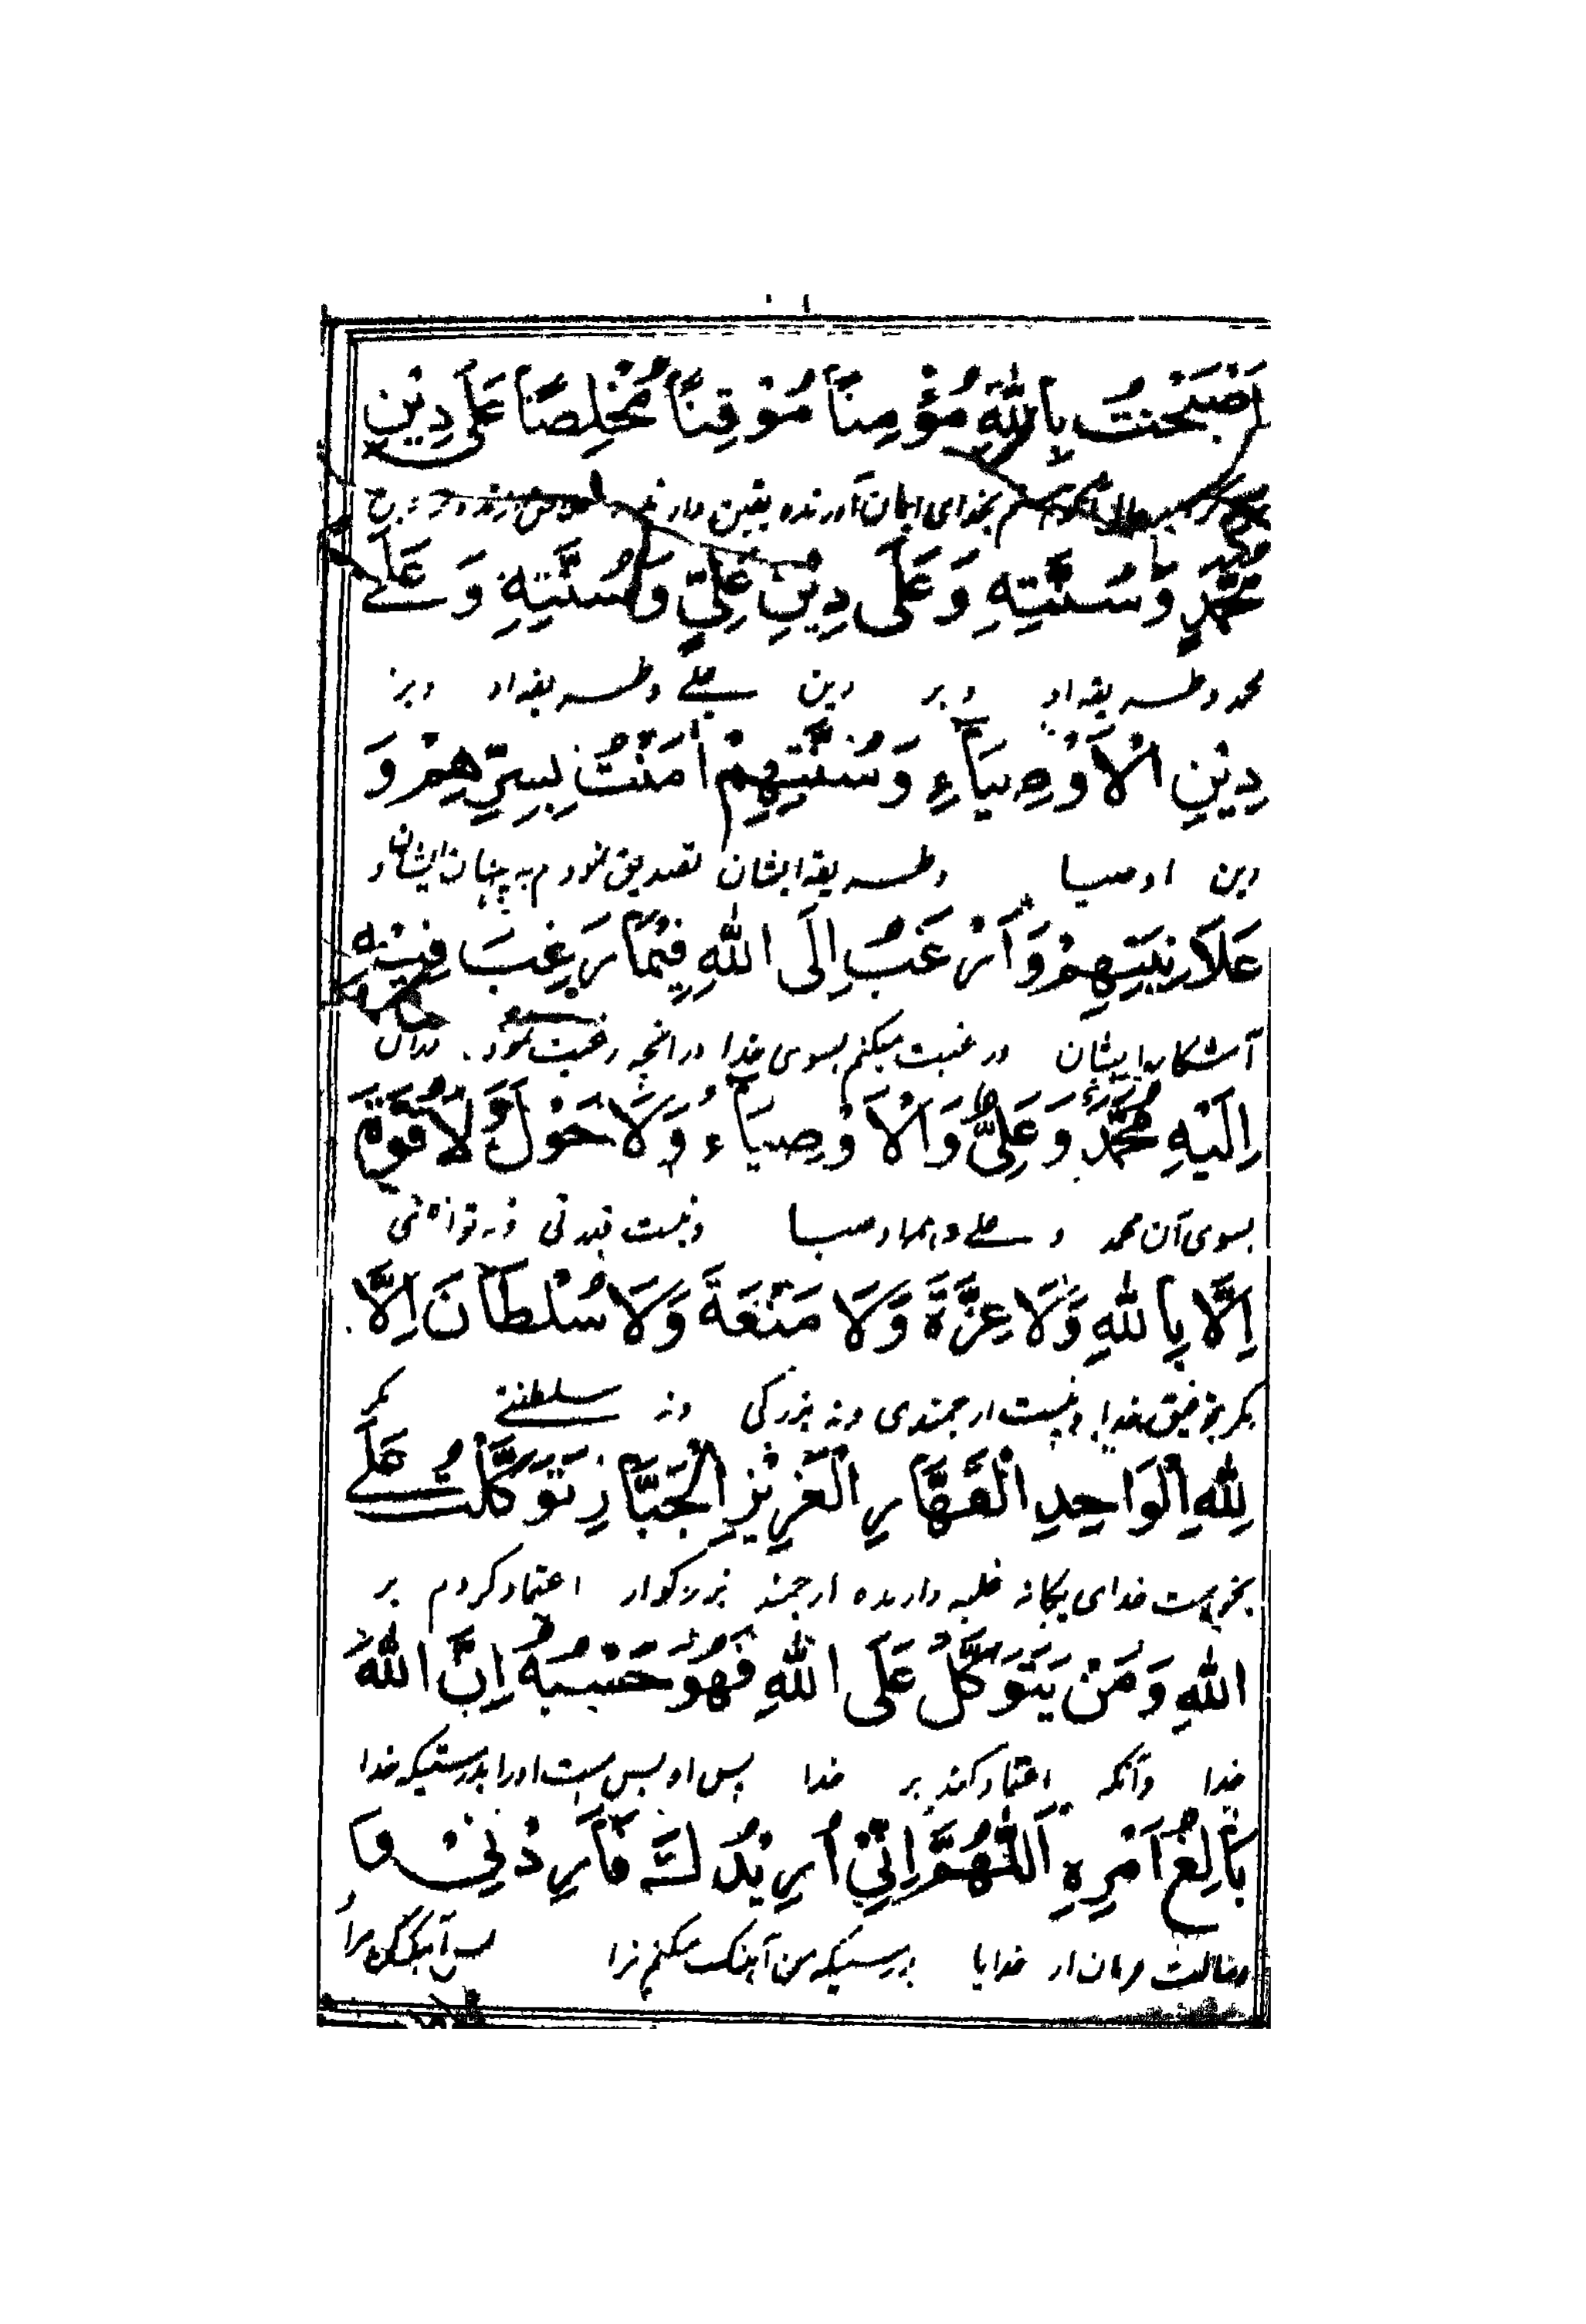 ۱۰
اَصْبَحْتُ بِاللّٰهِ مُؤْمِنًا مُوْقِنًا مُخْلِصًا عَلَى دِيْنِ
بخدای ایمان آورنده یقین دارنده
مُحَمَّدٍ وَسُنَّتِهِ وَعَلَى دِيْنِ عَلِيٍّ وَسُنَّتِهِ وَعَلٰے
محمد و طریقه او و بر دین علے و طریقه او و بر
دِيْنِ الْاَوْصِيَاءِ وَسُنَّتِهِمْ اٰمَنْتُ بِسِرِّهِمْ وَ
دین اوصیا و طریقه ایشان تصدیق نمودم به پنهان ایشان و
عَلَانِيَتِهِمْ وَاَرْغَبُ اِلَى اللّٰهِ فِيْمَا رَغِبَ فِيْهِ
آشکار ایشان و رغبت میکنم بسوی خدا در انچه رغبت نمود
اِلَيْهِ مُحَمَّدٌ وَعَلِيٌّ وَالْاَوْصِيَاءُ وَلَا حَوْلَ وَلَا قُوَّةَ
بسوی آن محمد و علے و اوصیا و نیست قدرتی و نه توانائی
اِلَّا بِاللّٰهِ وَلَا عِزَّةَ وَلَا مَنْعَةَ وَلَا سُلْطَانَ اِلَّا
مگر بتوفیق خدا و نیست ارجمندی و نه بزرگی و نه سلطنتے مگر
لِلّٰهِ الْوَاحِدِ الْقَهَّارِ الْعَزِيْزِ الْجَبَّارِ تَوَكَّلْتُ عَلَے
خدای یگانه غلبه دارنده ارجمند بزرگوار اعتماد کردم بر
اللّٰهِ وَمَنْ يَتَوَكَّلْ عَلَى اللّٰهِ فَهُوَ حَسْبُهُ اِنَّ اللّٰهَ
خدا و آنکه اعتماد کند بر خدا پس او بس است او را بدرستیکه خدا
بَالِغُ اَمْرِهِ اَللّٰهُمَّ اِنِّيْ اُرِيْدُكَ فَاَرِدْنِيْ وَ
فرمان او خدایا بدرستیکه من آهنگ میکنم ترا پس آهنگ کن مرا